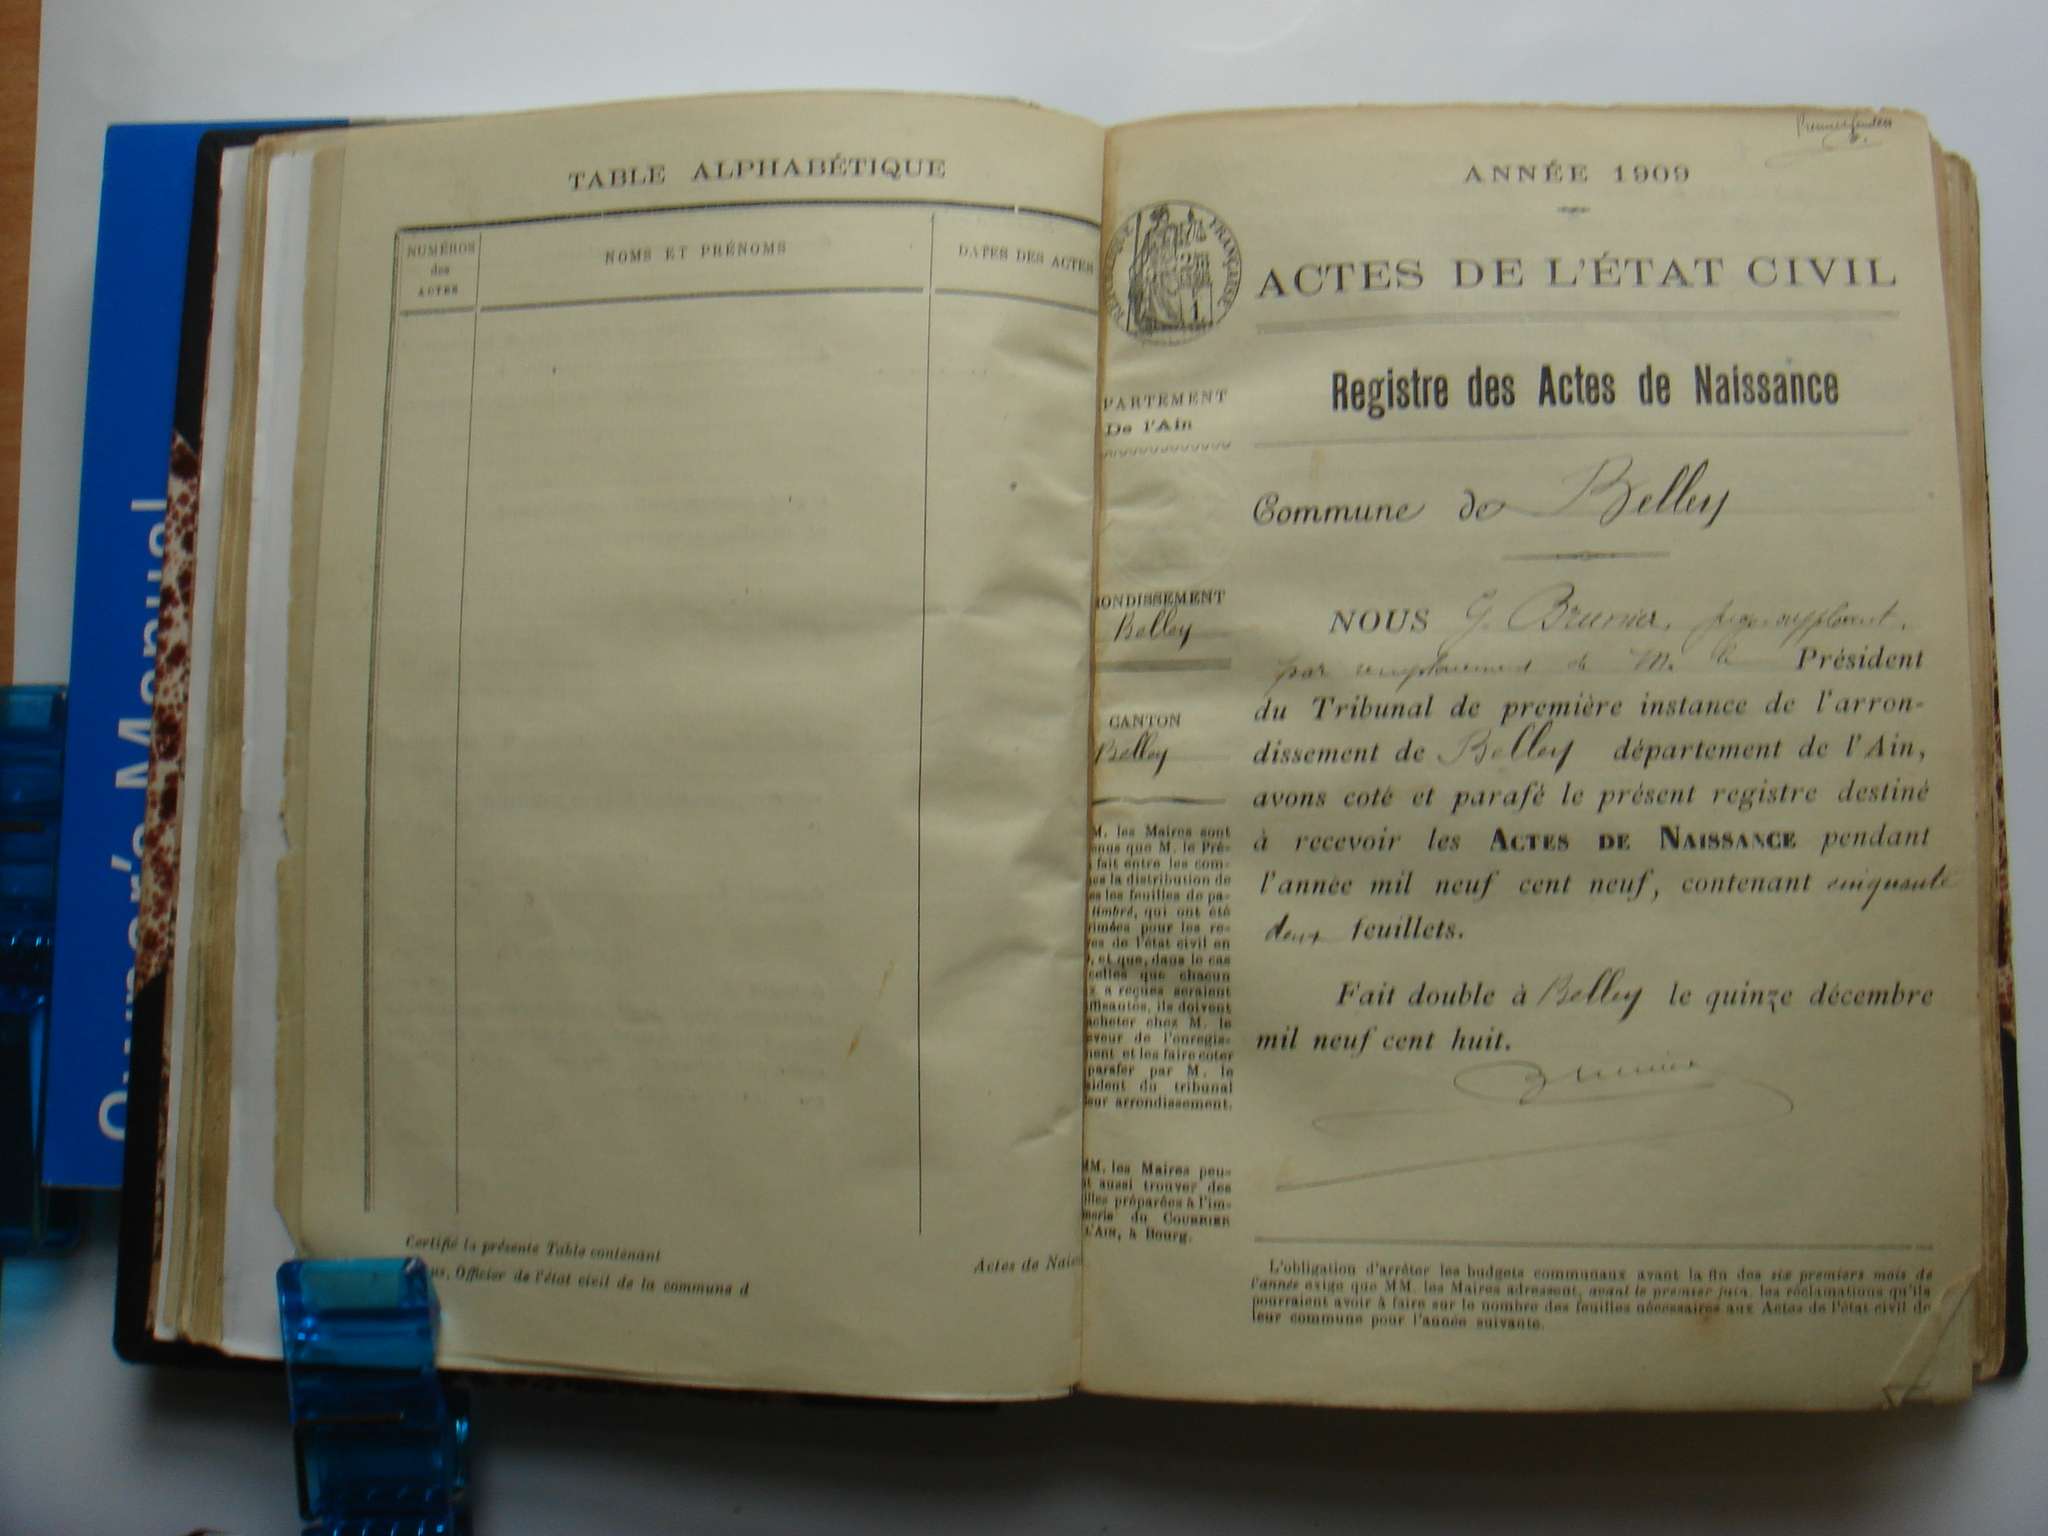 Owner's Manual
TABLE ALPHABÉTIQUE
NUMÉROS
des
ACTES
NOMS ET PRÉNOMS
DATES DES ACTES
Certifié la présente Table contenant
us, Officier de l'état civil de la commune d
Actes de Nais
Premier feuillet
ANNÉE 1909
RÉPUBLIQUE FRANÇAISE
ACTES DE L'ÉTAT CIVIL
Registre des Actes de Naissance
PARTEMENT
De l'Ain
Commune de Belley
ONDISSEMENT
Belley
CANTON
Belley
NOUS G. Brunier, juge suppléant,
par remplacement de M. le Président
du Tribunal de première instance de l'arron-
dissement de Belley département de l'Ain,
avons coté et parafé le présent registre destiné
à recevoir les ACTES DE NAISSANCE pendant
l'année mil neuf cent neuf, contenant cinquante
deux feuillets.
Fait double à Belley le quinze décembre
mil neuf cent huit.
Brunier
M. les Maires sont
enus que M. le Pré-
fait entre les com-
es la distribution de
es les feuilles de pa-
timbré, qui ont été
rimées pour les re-
es de l'état civil en
, et que, dans le cas
celles que chacun
x a reçues seraient
ffisantes, ils doivent
acheter chez M. le
eveur de l'enregis-
ment et les faire coter
parafer par M. le
sident du tribunal
eur arrondissement.
MM. les Maires peu-
t aussi trouver des
illes préparées à l'im-
merie du COURRIER
L'AIN, à Bourg.
L'obligation d'arrêter les budgets communaux avant la fin des six premiers mois de
l'année exige que MM. les Maires adressent, avant le premier juin, les réclamations qu'ils
pourraient avoir à faire sur le nombre des feuilles nécessaires aux Actes de l'état civil de
leur commune pour l'année suivante.